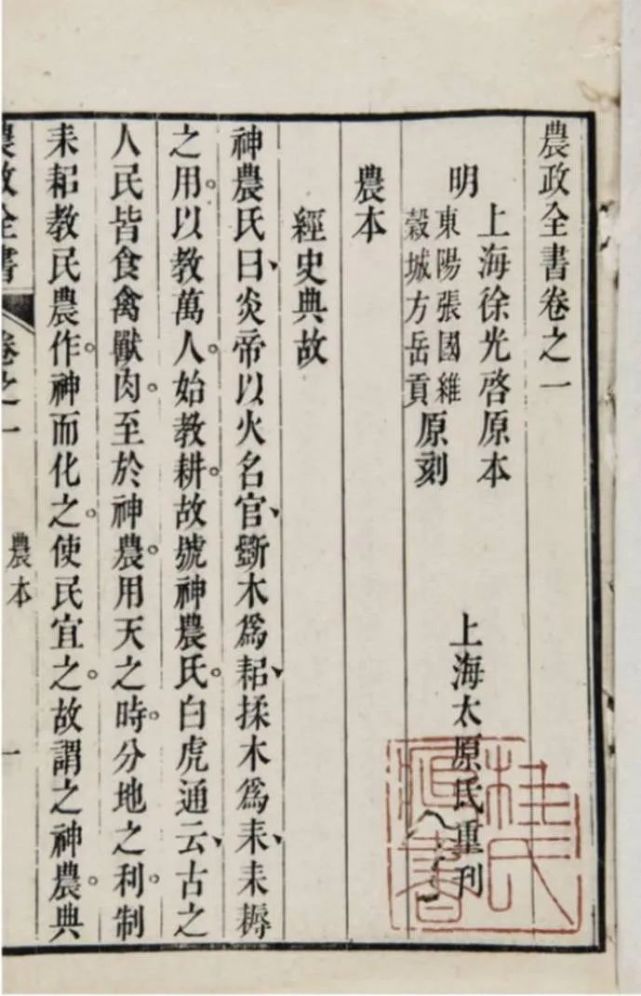 農政全書卷之一
明
上海徐光啓原本
東陽張國維
穀城方岳貢
原刻
上海太原氏重刊
農本
經史典故
神農氏曰、炎帝以火名官、斲木爲耜、揉木爲耒、耒耨
之用。以教萬人。始教耕。故號神農氏。白虎通云、古之
人民皆食禽獸肉。至於神農。用天之時。分地之利。制
耒耜教民農作。神而化之。使民宜之。故謂之神農。典
農政全書
卷之一
農本
一